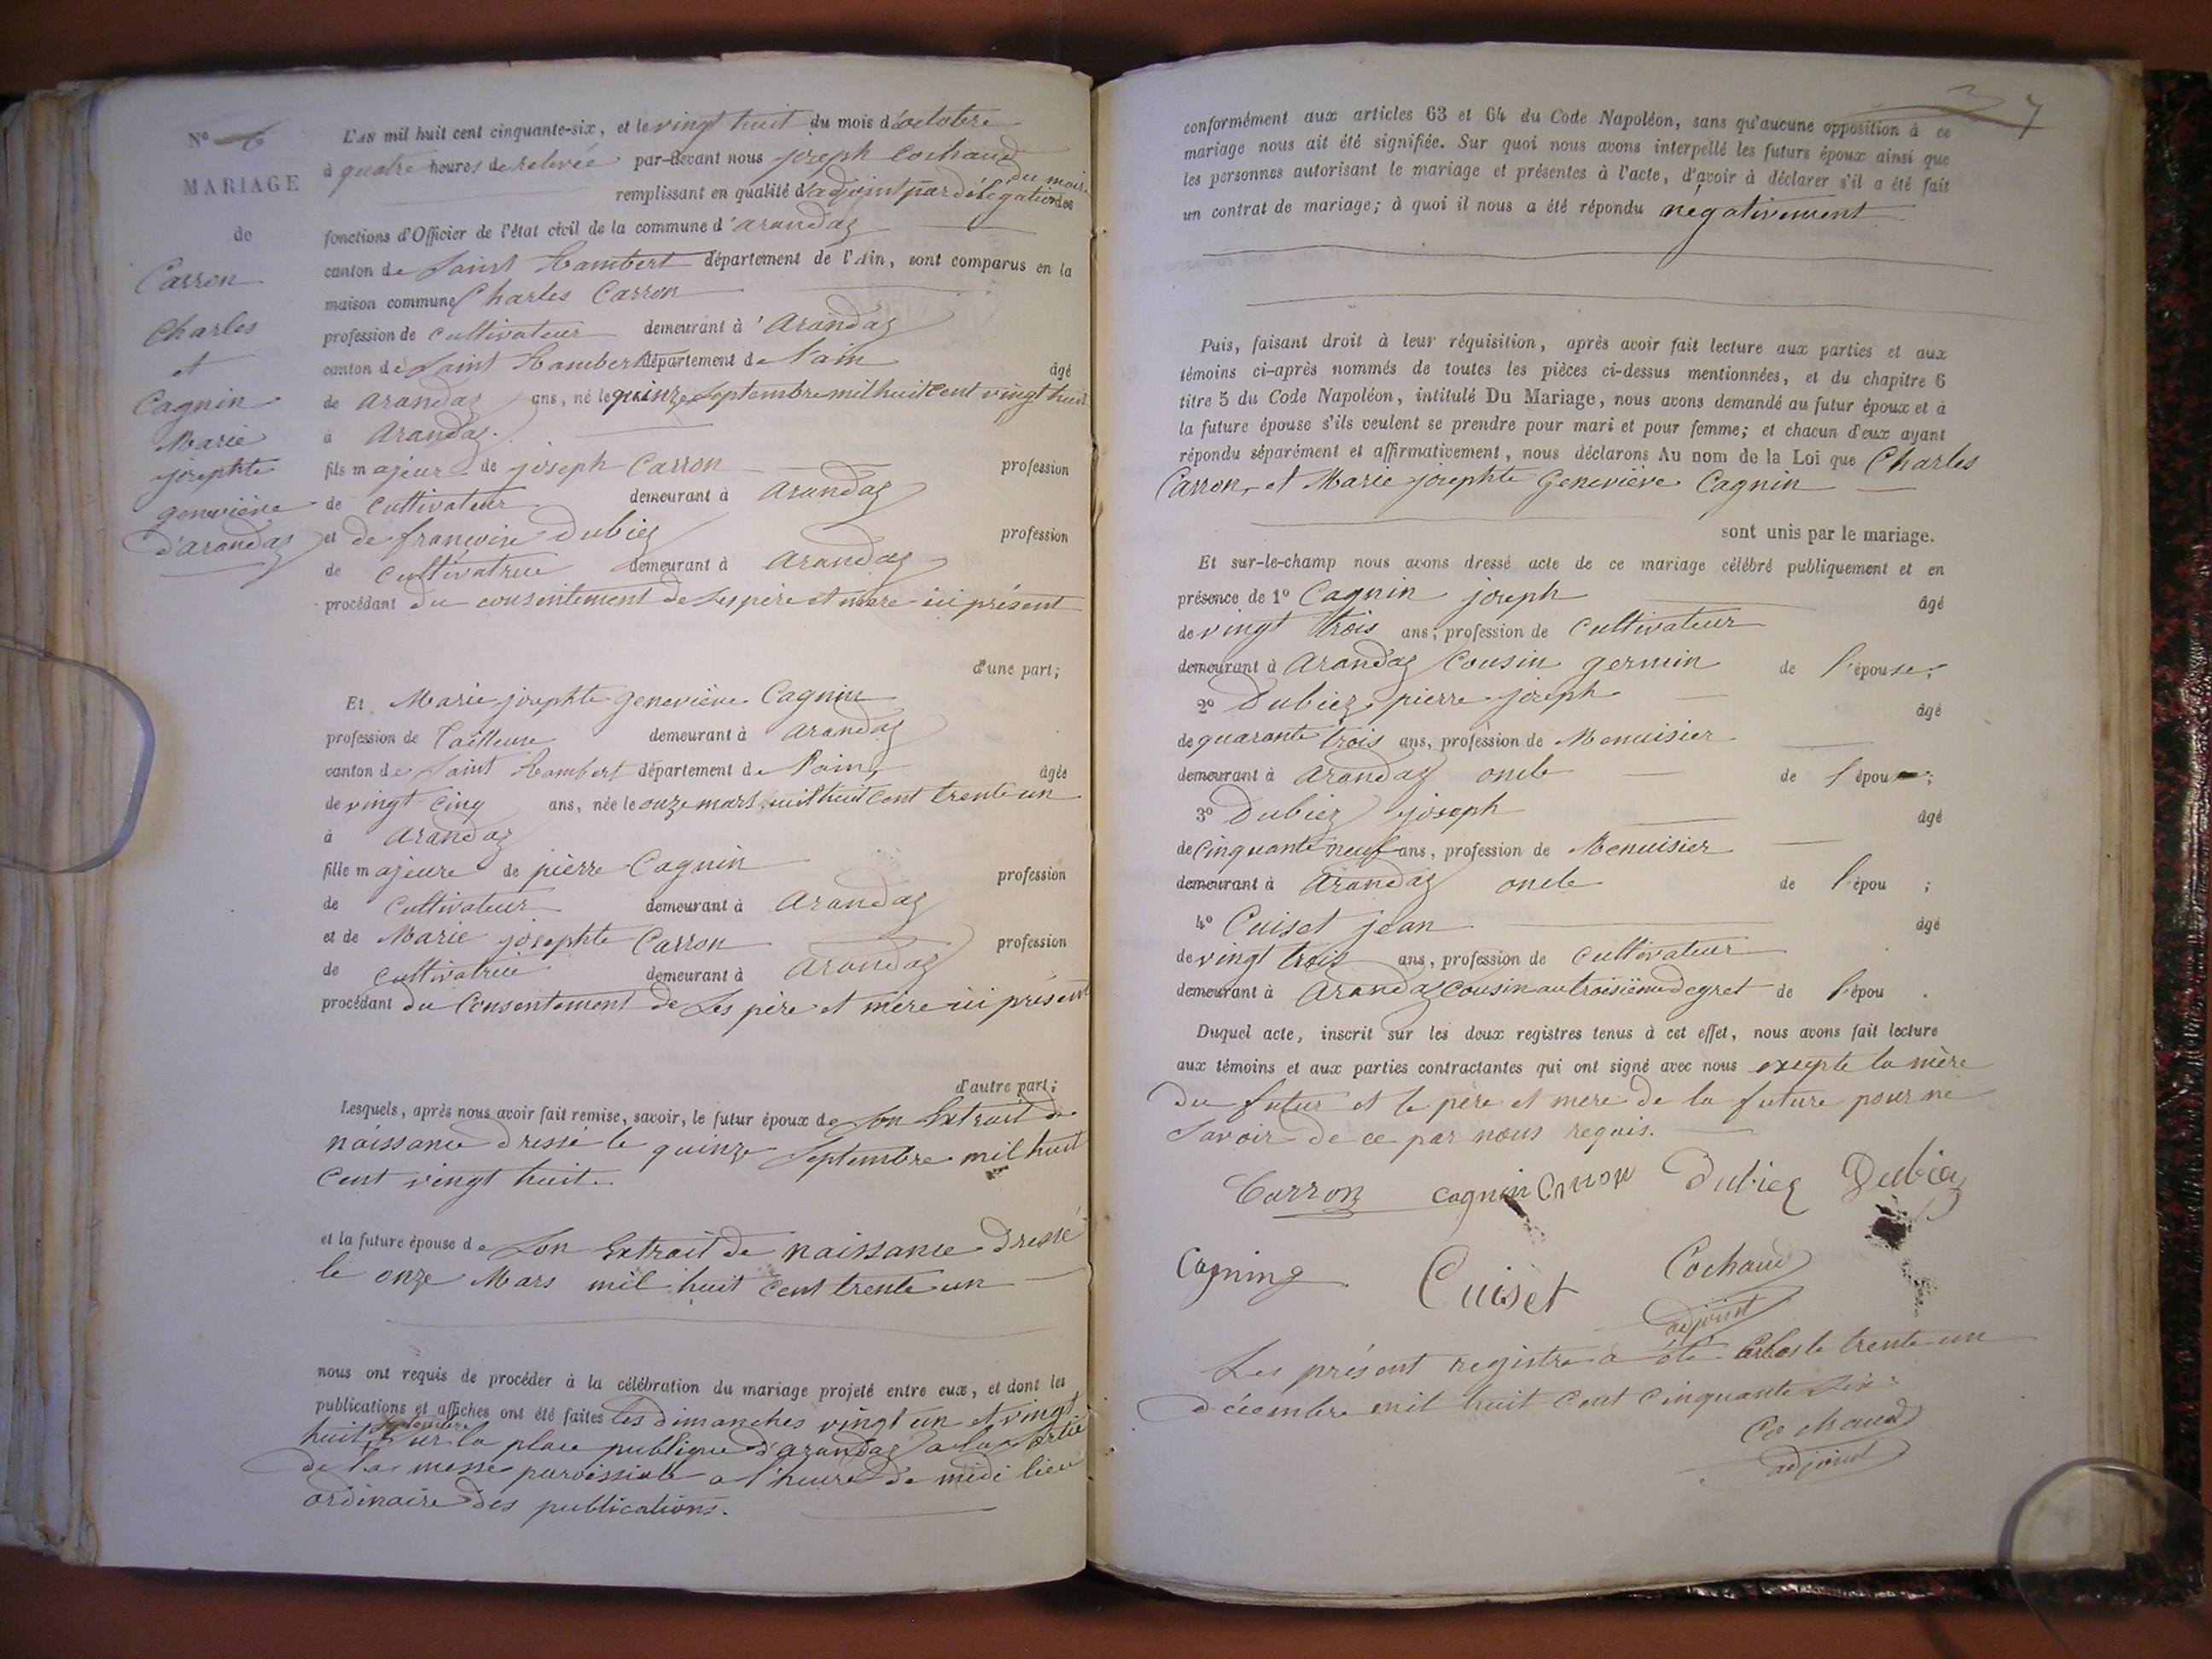 N° 6
MARIAGE
de
Carron
Charles
et
Cagnin
Marie
josephte
geneviève
d'arandas
L'AN mil huit cent cinquante-six, et le vingt huit du mois d'octobre
à quatre heures de relevée par-devant nous joseph Cochaud
remplissant en qualité d'adjoint par délégation du maire des
fonctions d'Officier de l'état civil de la commune d'arandas
canton de Saint Rambert département de l'Ain, sont comparus en la
maison commune Charles Carron
profession de cultivateur demeurant à Arandas
canton de Saint Rambert département de l'ain âgé
de arandas ans, né le quinze Septembre mil huit cent vingt huit
à Arandas.
fils majeur de joseph Carron profession
de cultivateur demeurant à Arandas
et de francoise Dubiez profession
de cultivatrice demeurant à Arandas
procédant du consentement de ses père et mère ici présent
d'une part;
Et Marie josephte geneviève Cagnin
profession de Tailleuse demeurant à Arandas
canton de Saint Rambert département de l'ain, âgée
de vingt cinq ans, née le onze mars mil huit cent trente un
à Arandas
fille majeure de pierre Cagnin profession
de Cultivateur demeurant à Arandas
et de Marie josephte Carron profession
de cultivatrice demeurant à Arandas
procédant du Consentement de Ses père et mère ici présent
d'autre part;
Lesquels, après nous avoir fait remise, savoir, le futur époux de Son Extrait de
naissance dressé le quinze Septembre mil huit
cent vingt huit.
et la future épouse de Son Extrait de naissance dressé
le onze Mars mil huit cent trente un
nous ont requis de procéder à la célébration du mariage projeté entre eux, et dont les
publications et affiches ont été faites les dimanches vingt un et vingt
huit septembre sur la place publique d'arandas a la sortie
de la messe paroissiale a l'heure de midi lieu
ordinaire des publications.
7
conformément aux articles 63 et 64 du Code Napoléon, sans qu'aucune opposition à ce
mariage nous ait été signifiée. Sur quoi nous avons interpellé les futurs époux ainsi que
les personnes autorisant le mariage et présentes à l'acte, d'avoir à déclarer s'il a été fait
un contrat de mariage; à quoi il nous a été répondu negativement
Puis, faisant droit à leur réquisition, après avoir fait lecture aux parties et aux
témoins ci-après nommés de toutes les pièces ci-dessus mentionnées, et du chapitre 6
titre 5 du Code Napoléon, intitulé Du Mariage, nous avons demandé au futur époux et à
la future épouse s'ils veulent se prendre pour mari et pour femme; et chacun d'eux ayant
répondu séparément et affirmativement, nous déclarons Au nom de la Loi que Charles
Carron, et Marie josephte Geneviève Cagnin
sont unis par le mariage.
Et sur-le-champ nous avons dressé acte de ce mariage célébré publiquement et en
présence de 1° Cagnin joseph âgé
de vingt trois ans; profession de Cultivateur
demeurant à Arandas Cousin germin de l'épouse;
2° Dubiez pierre joseph âgé
de quarante trois ans, profession de Menuisier
demeurant à Arandas oncle de l'épou;
3° Dubiez joseph âgé
de Cinquante neuf ans, profession de Menuisier
demeurant à Arandas oncle de l'épou ;
4° Cuiset jean âgé
de vingt trois ans, profession de cultivateur
demeurant à Arandas cousin au troisième degret de l'épou .
Duquel acte, inscrit sur les deux registres tenus à cet effet, nous avons fait lecture
aux témoins et aux parties contractantes qui ont signé avec nous exepte la mère
du futur et le père et mere de la future pour ne
Savoir de ce par nous requis.
Carron cagnin Dubiez Dubiez
Cagning Cuiset Cochaud
adjoint
Les présent registre a été Clos le trente un
décembre mil huit cent cinquante Six.
Cochaud
adjoint